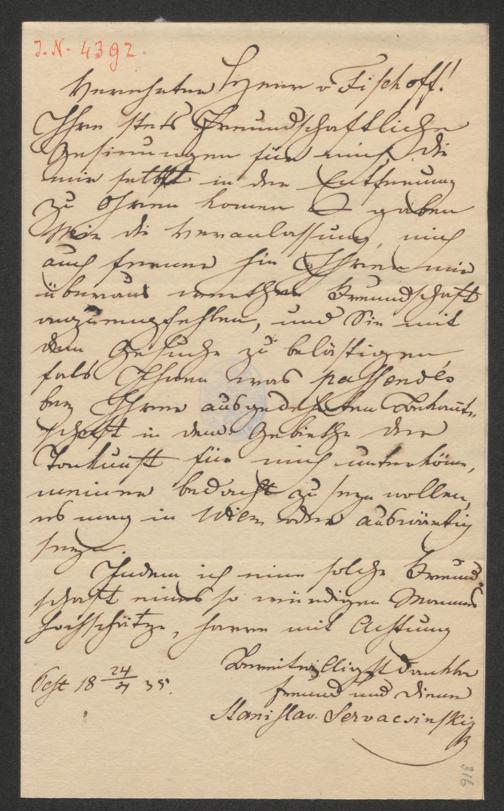 J.N. 4392.
Verehrter Herr v Fischoff!
Ihre stets freundschaftliche
Gesinnungen für mich, die
mir selbst in der Entfernung
zu Ohren komen gaben
mir die Veranlassung, mich
auch ferner hin Ihrer mir
überaus werthen Freundschaft
anzuempfehlen, und Sie mit
dem Gesuche zu belästigen,
fals Ihnen was passendes
bey Ihrer ausgedehnten Bekannt-
schaft in dem Gebiethe der
Tonkunst für mich unterköme,
meiner bedacht zu seyn wollen,
es mag in Wien oder auswärtig
seyn.
Indem ich eine solche Freund-
schaft eines so würdigen Mannes
hochschätze, harre mit Achtung
Bereitwilligst dankbar
Freund und Diener
Pest 18 24/4 35.
Stanislav Servacsinsky
316